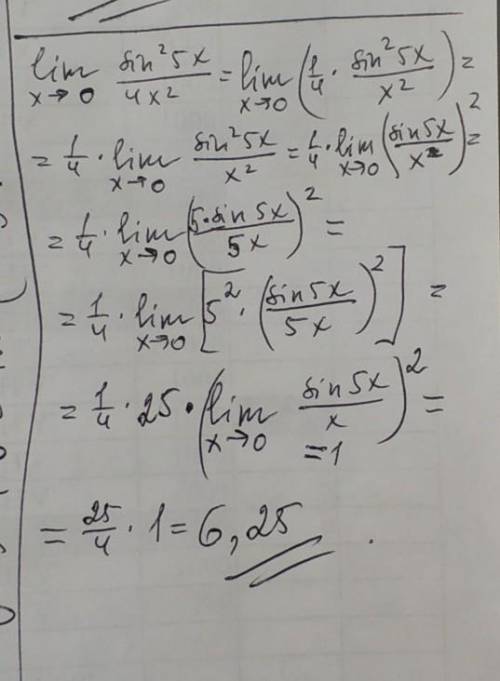 lim x→0 sin²5x / 4x² = lim x→0 (1/4 · sin²5x / x²) =
= 1/4 · lim x→0 sin²5x / x² = 1/4 · lim x→0 (sin5x / x)² =
= 1/4 · lim x→0 (5·sin 5x / 5x)² =
= 1/4 · lim x→0 [5² · (sin5x / 5x)²] =
= 1/4 · 25 · (lim x→0 sin5x / x)² =
=1
= 25/4 · 1 = 6,25